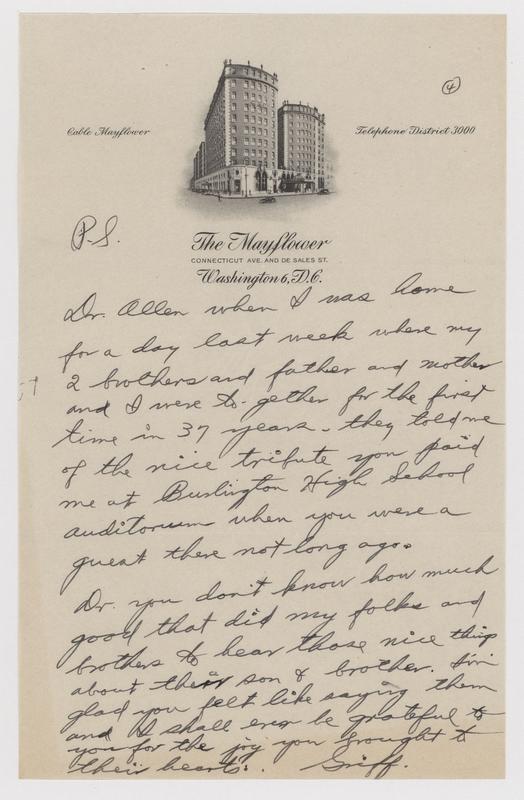 ④
Cable Mayflower
Telephone District 3000
P.S.
The Mayflower
CONNECTICUT AVE. AND DE SALES ST.
Washington 6, D.C.
Dr. Allen when I was home
for a day last week where my
2 brothers and father and mother
and I were to-gether for the first
time in 37 years - they told me
of the nice tribute you paid
me at Burlington High School
auditorium when you were a
guest there not long ago.
Dr. you don't know how much
good that did my folks and
brothers to hear those nice things
about their son & brother. I'm
glad you felt like saying them
and I shall ever be grateful to
you for the joy you brought to
their hearts. Griff.